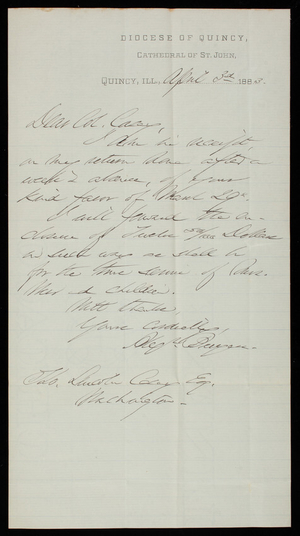 DIOCESE OF QUINCY,
CATHEDRAL OF ST. JOHN,
QUINCY, ILL., April 3d 1883.
Dear Col. Casey,
I am in receipt,
on my return home after a
week's absence, of your
kind favor of March 29th.
I will forward the en-
closure of Twelve 50/100 Dollars
in such way as shall be
for the true service of
and children.
With thanks,
Yours cordially,
Alex.
Tho. Lincoln Casey Esq.
Washington.